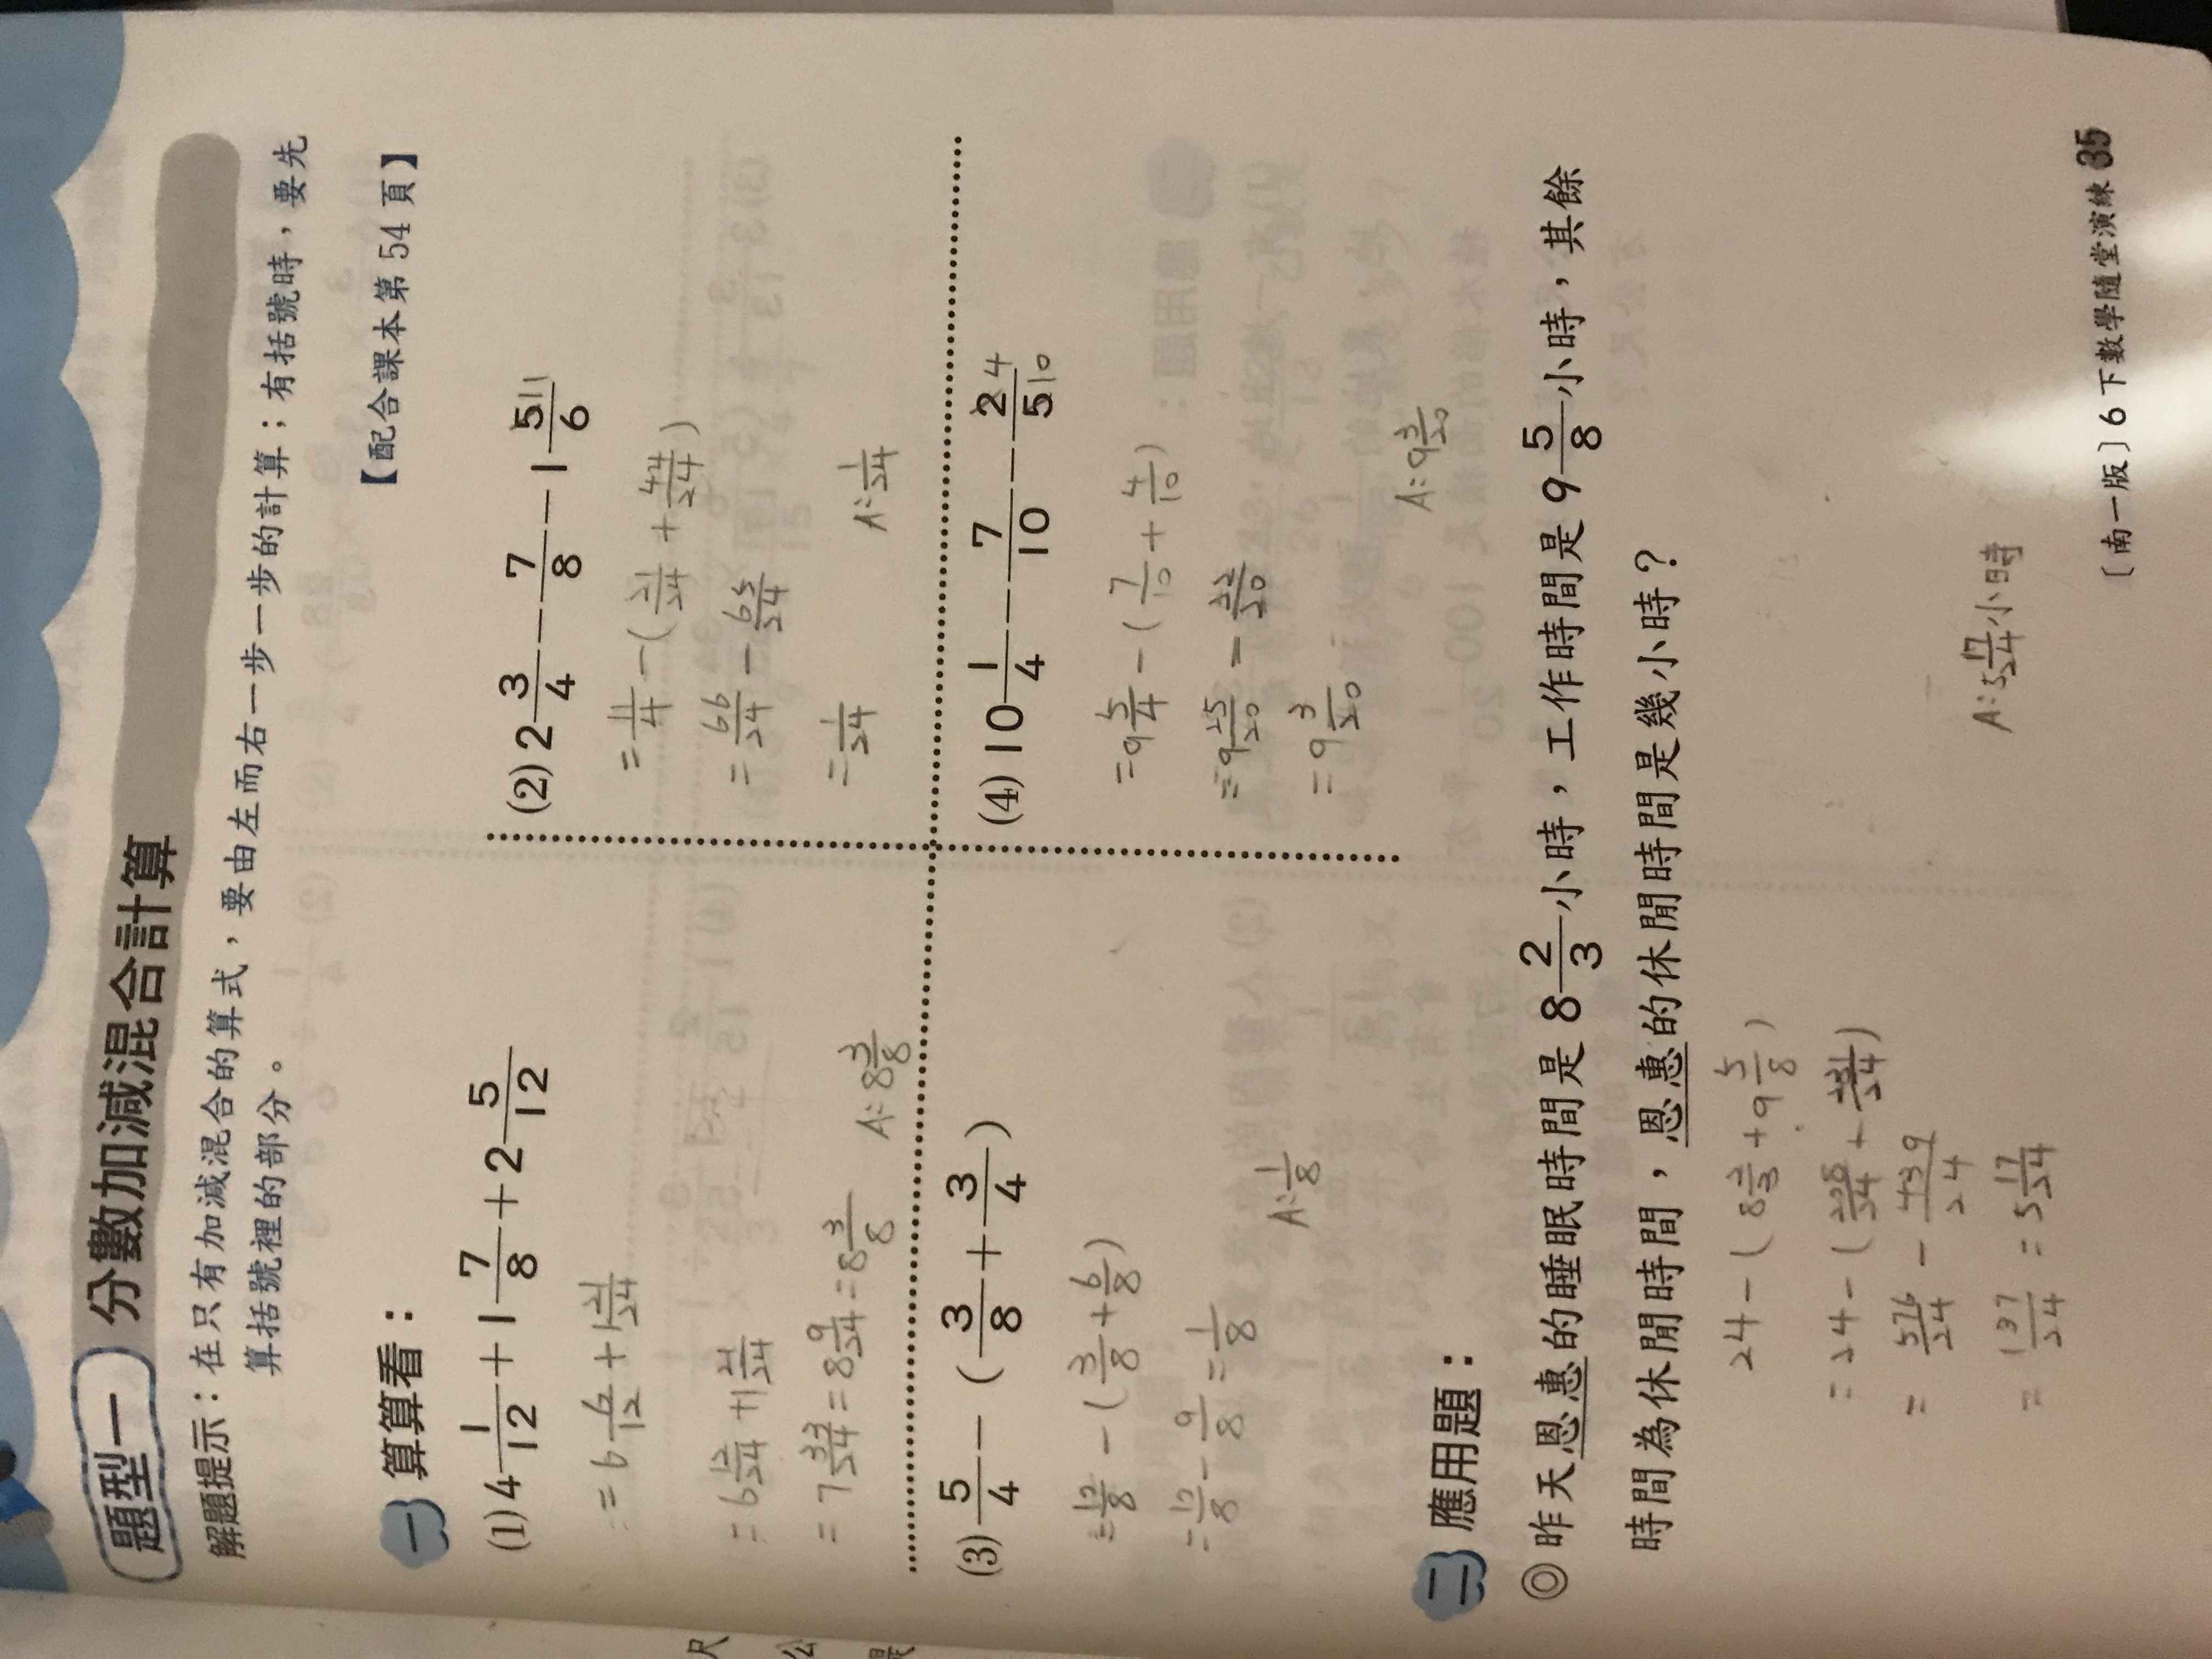 題型一 分數加減混合計算
解題提示：在只有加減混合的算式，要由左而右一步一步的計算；有括號時，要先
算括號裡的部分。
【配合課本第 54 頁】
一 算算看：
(1) 4 1/12 + 1 7/8 + 2 5/12
= 6 6/12 + 1 21/24
= 6 12/24 + 1 21/24
= 7 33/24 = 8 9/24 = 8 3/8
A: 8 3/8
(2) 2 3/4 - 7/8 - 1 5/6 11
= 11/4 - ( 21/24 + 44/24 )
= 66/24 - 65/24
= 1/24
A: 1/24
(3) 5/4 - ( 3/8 + 3/4 )
= 10/8 - ( 3/8 + 6/8 )
= 10/8 - 9/8 = 1/8
A: 1/8
(4) 10 1/4 - 7/10 - 2/5 4/10
= 9 5/4 - ( 7/10 + 4/10 )
= 9 25/20 - 22/20
= 9 3/20
A: 9 3/20
二 應用題：
◎昨天恩惠的睡眠時間是 8 2/3 小時，工作時間是 9 5/8 小時，其餘
時間為休閒時間，恩惠的休閒時間是幾小時？
24 - ( 8 2/3 + 9 5/8 )
= 24 - ( 208/24 + 231/24 )
= 576/24 - 439/24
= 137/24 = 5 17/24
A: 5 17/24 小時
〔南一版〕6 下數學隨堂演練 35